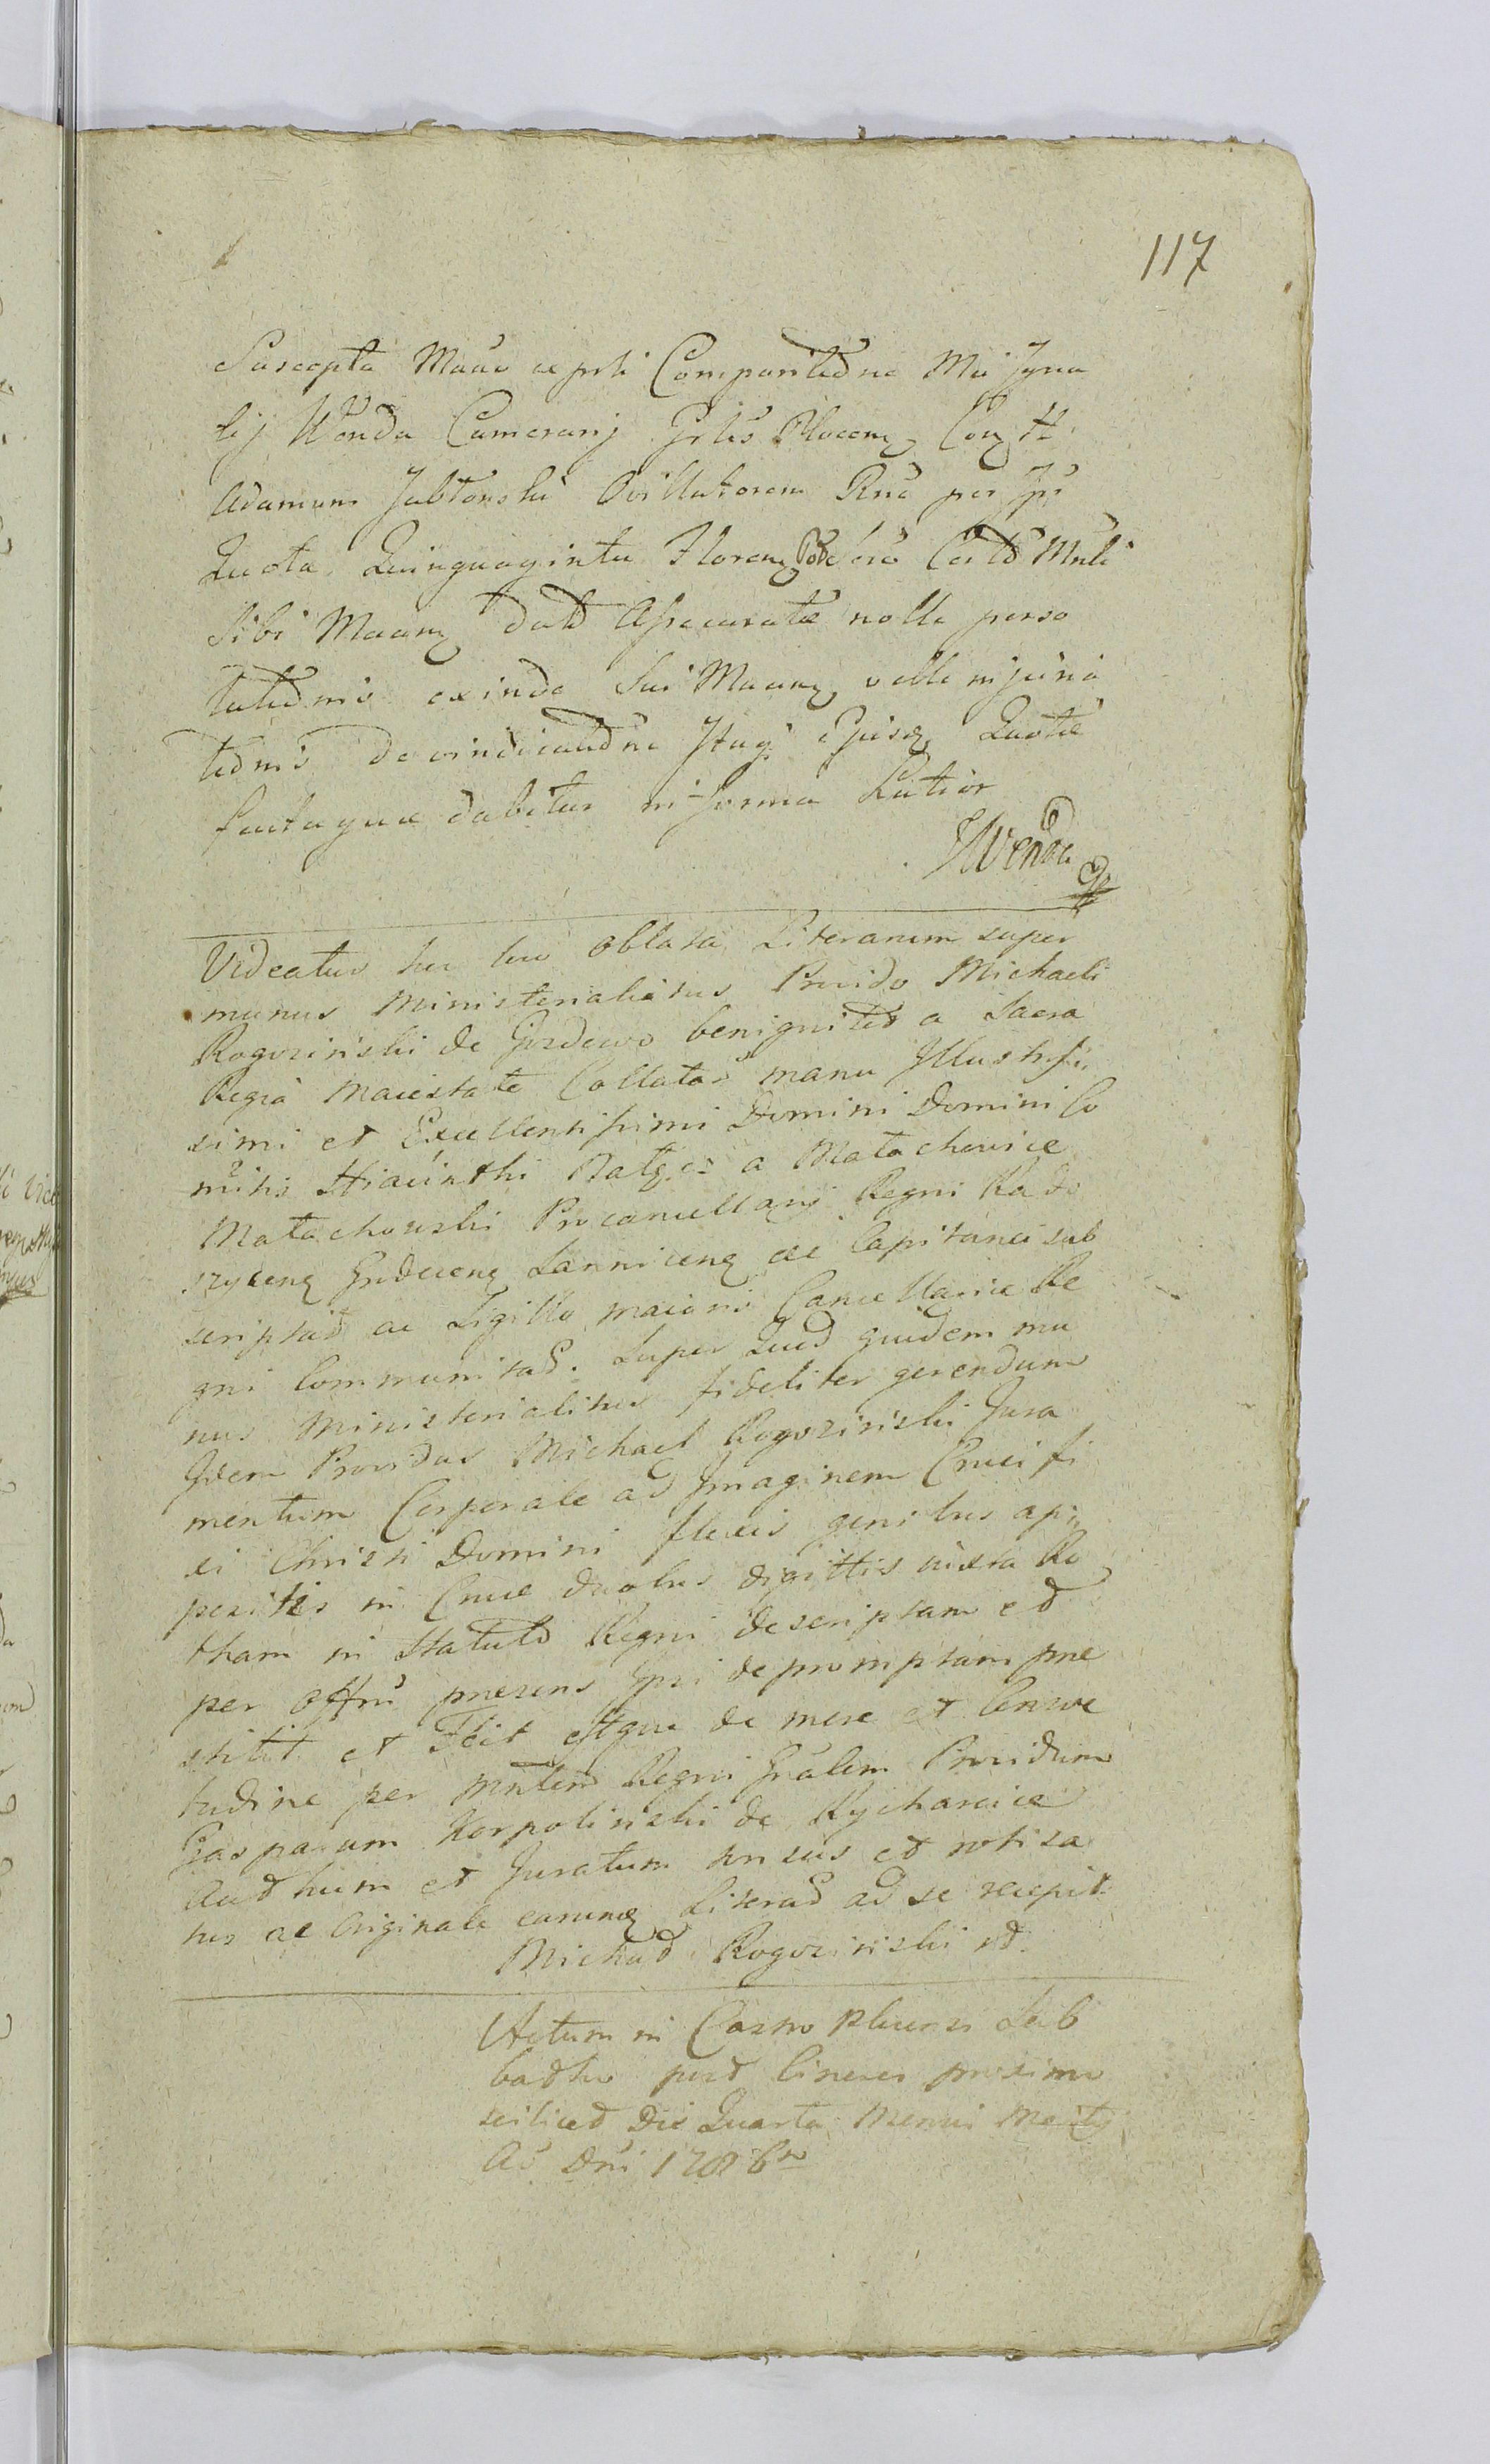 117
Suscepta Manu ac prti Comparitõne Mci Igna
tij Wenda Camerarij Grlis Plocen
Adamum Jabłonski Ovillatorem
Quota Quinquaginta Floren
sibi Maanz datd Assecuratae nolle perso
exinde Sui velle
devindicatõne Ejusdz Quotae
factaque dabitur in forma Latior
JWenda
Videatur hic loco Oblata Literarum super
munus Ministerialitus Provido Michaeli
Rogozinski de Gozdowo benignitd a Sacra
Regia Maiestate Collatar manu Illustrissi
simi et Excellentissimi Domini Domini Co
mitis Hiacinthi Nałęcz a Małachowice
Małachowski Procancellarij Regni Rado
szycenz Grudecenz Sannicenz ac Capitanei sub
scriptard ac Sigillo maioris Cancellariae Re
gni Communitard. Super Quod quidem mu
nus Ministerialitus fideliter gerendum
Idem Providus Michael Rogozinski Jura
mentum Corporale ad Imaginem Crucifi
xi Christi Domini flexis genibus api
positis in Cruce duobus digittis iuxta Ro
tham in Statutd Regni descriptam et
per Offm praesens Ipsi depromptam prae
stitit et Fecit estque de more et Consve
tudine per Mnlem Regni Gnalem Providum
Gasparum Karpolinski de Rycharcice
Authum et Juratum
tus ac Originale earumdz Literard ad se recepit
Michael Rogozinski
Actum in Castro Plocensi Sab
batho post Cineres proximo
scilicet Die Quarta Mensis Martij
Aõ Dni 1786to